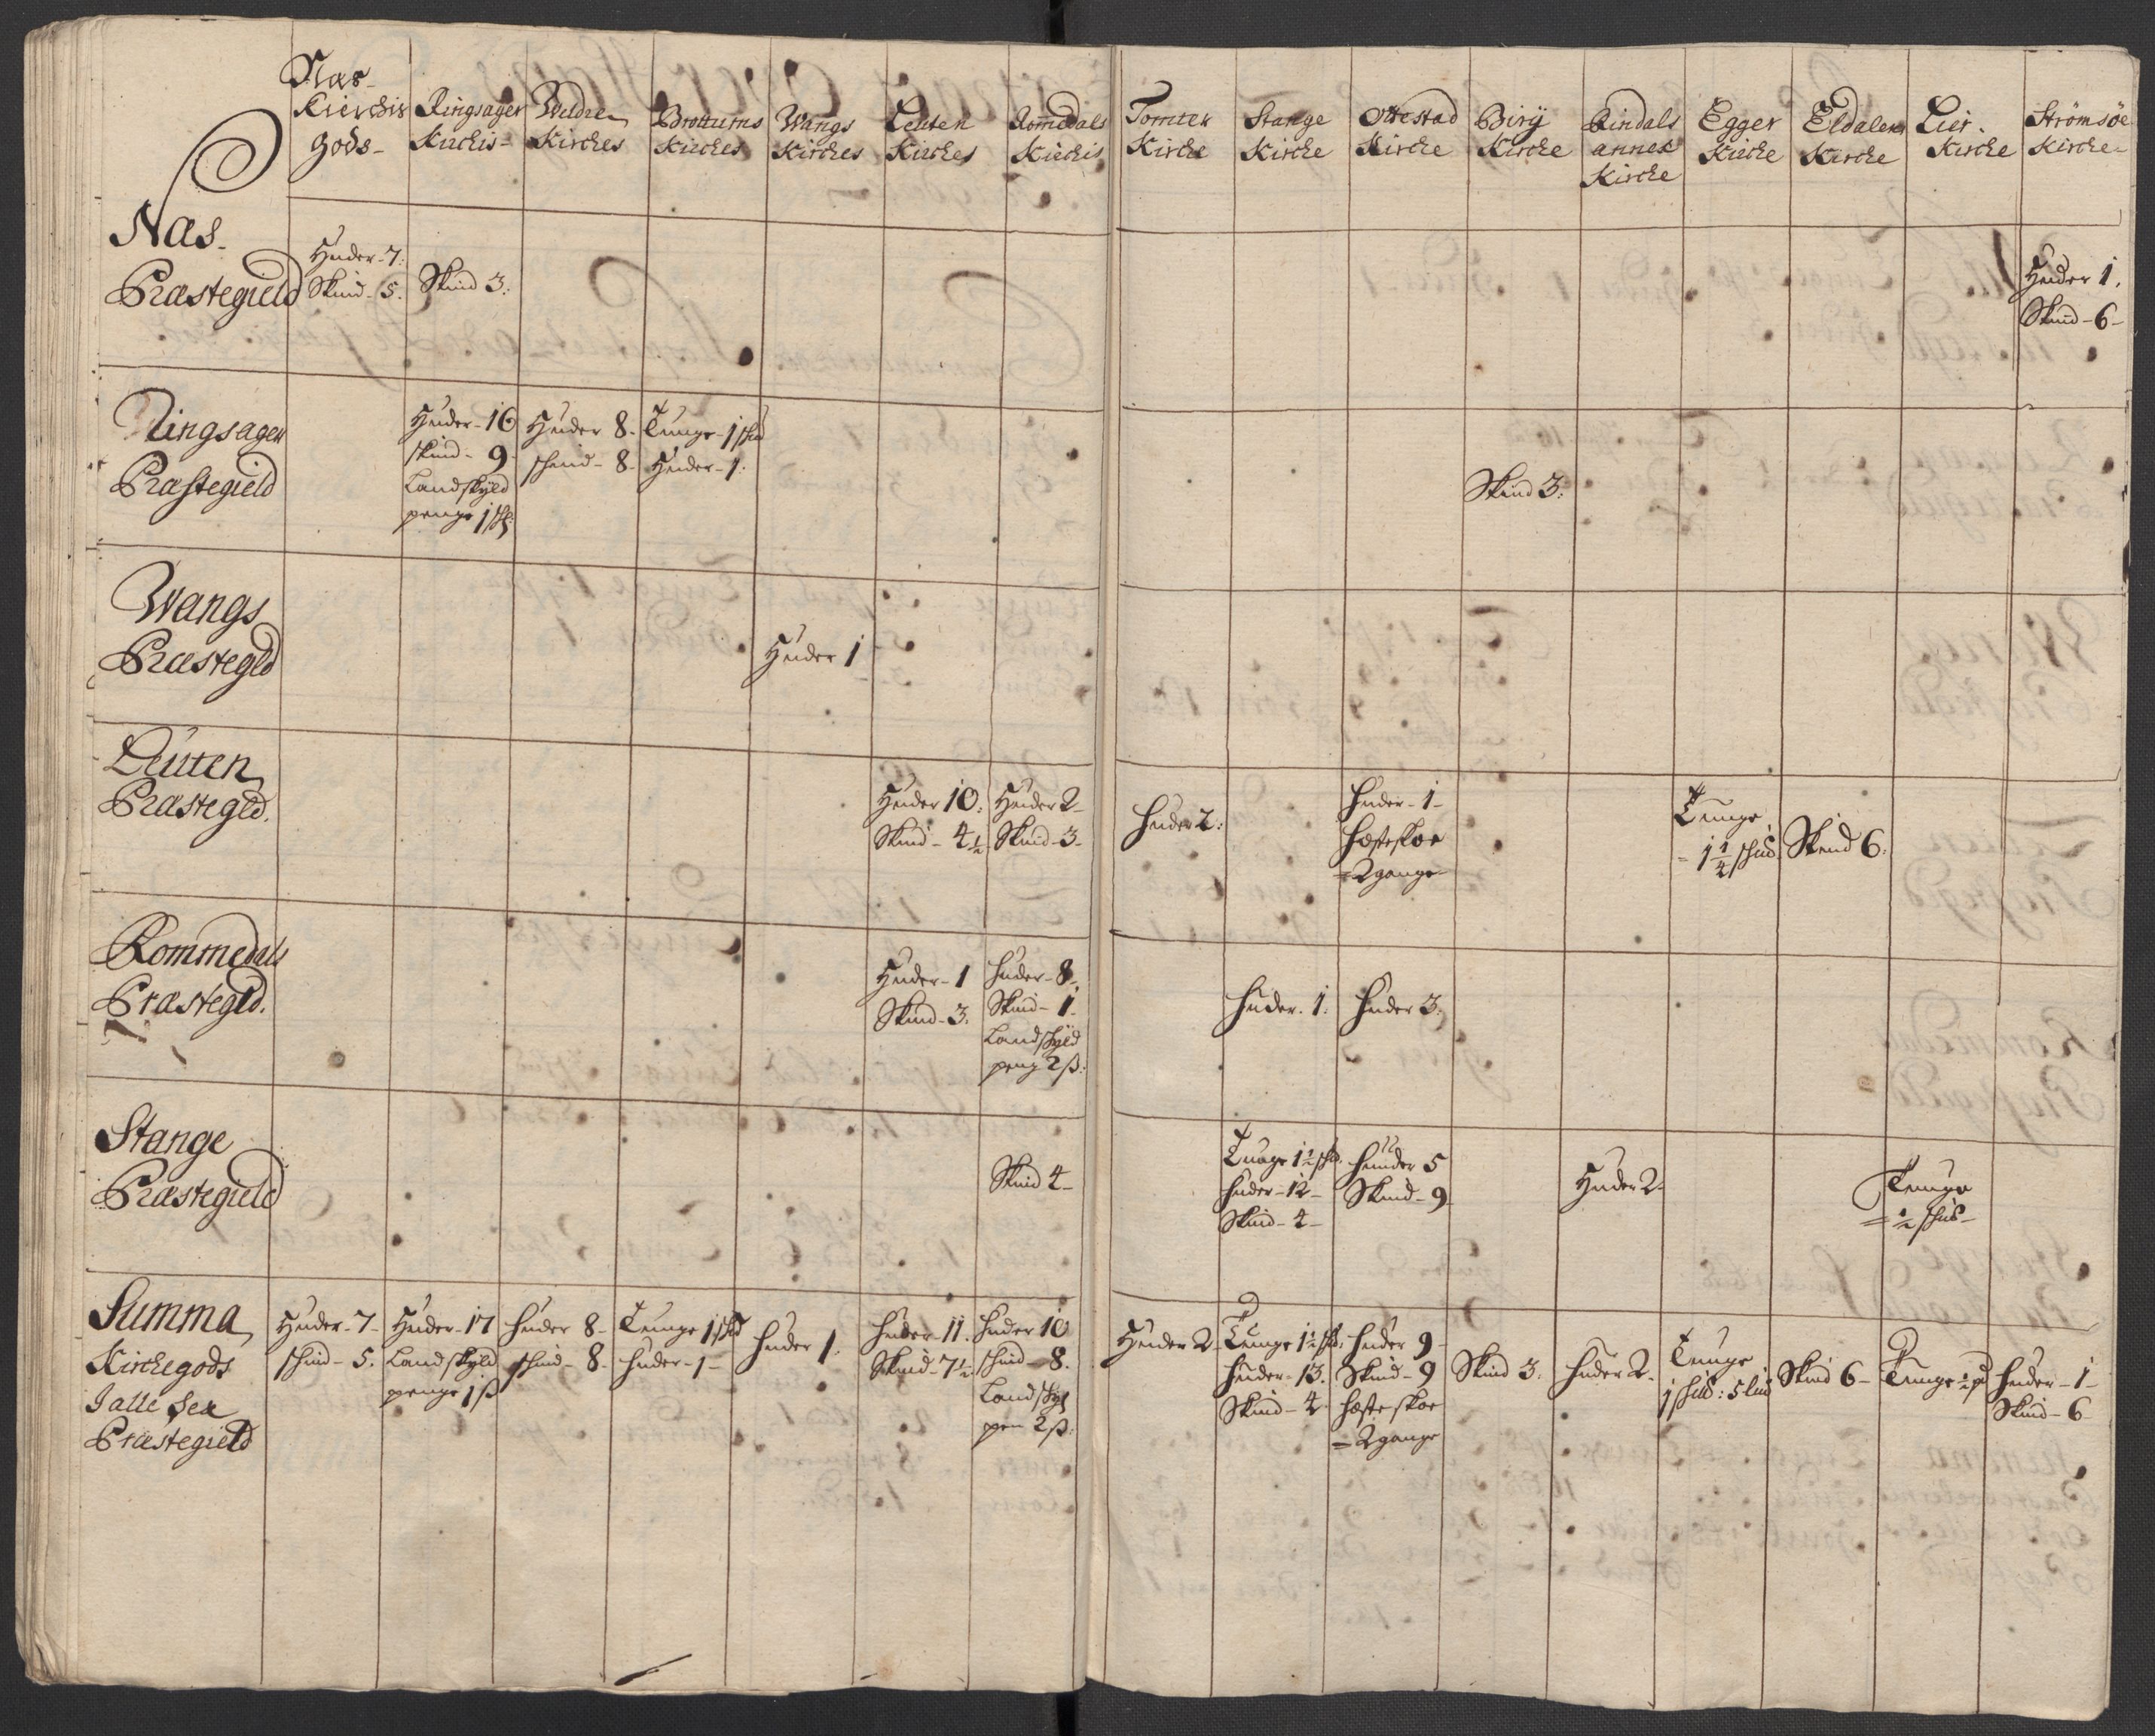 Næs
Kierckis
gods-
Ringsager
Kirckis-
Weldre
Kirckes
Brottums
Kirckes
Wangs
Kirckes
Leuten
Kirckes
Rommedals
Kirckis
Tomter
Kircke
Stange
Kircke
Ottestad
Kircke
Birij
Kircke
Rindals
annex
Kircke
Egger
Kircke
Eldalen
Kircke
Lier.
Kircke
Strømsøe
Kircke-
Næs-
Præstegield
Huder-7:
Skind-5.
Skind 3:
Huder 1.
Skind-6-
Ringsager
Præstegield
Huder-16
skind-9-
Landskyld
penge 1 ß
Huder 8-
schind-8-
Tunge-1 schd
Huder-1.
Skind 3:
Wangs
Præstegld
Huder 1
Leuten
Præstegld.
Huder 10.
Skind-4½
Huder 2-
Skind-3-
Huder 2:
Huder-1-
hesteskoe
=2 gange
Tunge
=1¼ schd
Skind 6.
Rommedals
Præstegld.
Huder-1
Skind-3.
Huder-8-
Skind-1-
Landskyld
peng 2 ß:
Huder.1:
Huder 3.
Stange
Præstegield
Skind 4-
Tunge 1½ schd.
Huder-12-
Skind-4-
Hunder 5
Skind-9
Huder 2-
Tunge
=½ schd-
Summa
Kirckegods
I alle Sex
Præstegield
Huder-7-
schind-5.
Huder-17
Landskyld
penge 1 ß
Huder 8-
schind-8-
Tunge 1 schd
Huder-1-
Huder 1.
Huder-11.
Skind-7½
Huder 10
schind-8.
Landskyl
pen 2 ß.
Huder 2
Tunge 1½ schd.
Huder-13.
Skind-4
Huder 9-
Skind-9
hesteskoe
=2 gange
Skind 3.
Huder 2-
Tunge
1 schd: 5 lid
Skind 6-
Tunge ½ schd
Huder-1-
Skind-6-